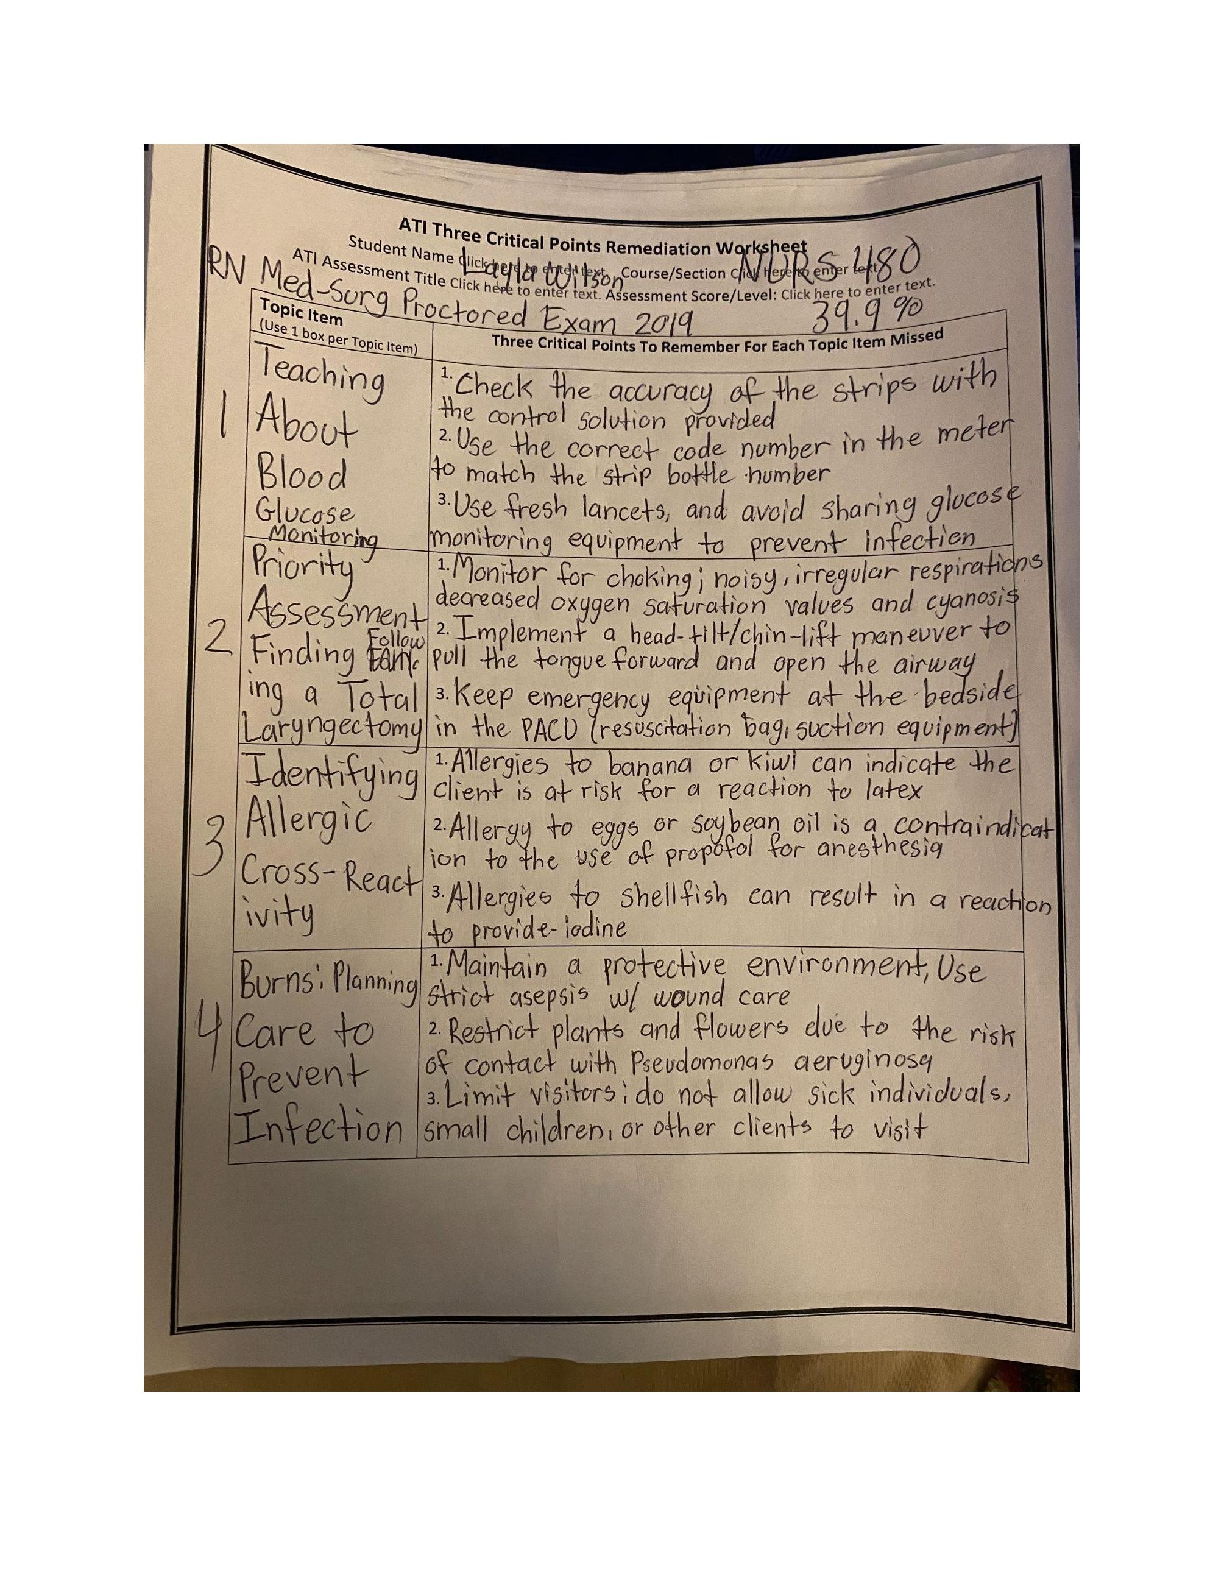 ATI Three Critical Points Remediation Worksheet
Student Name Click here to enter text. Layla Wilson Course/Section Click here to enter text. NURS 480
ATI Assessment Title Click here to enter text. Assessment Score/Level: Click here to enter text.
RN Med-Surg Proctored Exam 2019 39.9%
Topic Item
(Use 1 box per Topic Item)
Three Critical Points To Remember For Each Topic Item Missed
1
Teaching
About
Blood
Glucose
Monitoring
1. Check the accuracy of the strips with
the control solution provided
2. Use the correct code number in the meter
to match the strip bottle number
3. Use fresh lancets, and avoid sharing glucose
monitoring equipment to prevent infection
2
Priority
Assessment
Finding Follow
ing a Total
Laryngectomy
1. Monitor for choking; noisy, irregular respirations
decreased oxygen saturation values and cyanosis
2. Implement a head-tilt/chin-lift maneuver to
pull the tongue forward and open the airway
3. Keep emergency equipment at the bedside
in the PACU (resuscitation bag, suction equipment)
3
Identifying
Allergic
Cross-React
ivity
1. Allergies to banana or kiwi can indicate the
client is at risk for a reaction to latex
2. Allergy to eggs or soybean oil is a contraindicat
ion to the use of propofol for anesthesia
3. Allergies to shellfish can result in a reaction
to provide-iodine
4
Burns: Planning
Care to
Prevent
Infection
1. Maintain a protective environment, Use
strict asepsis w/ wound care
2. Restrict plants and flowers due to the risk
of contact with Pseudomonas aeruginosa
3. Limit visitors; do not allow sick individuals,
small children, or other clients to visit